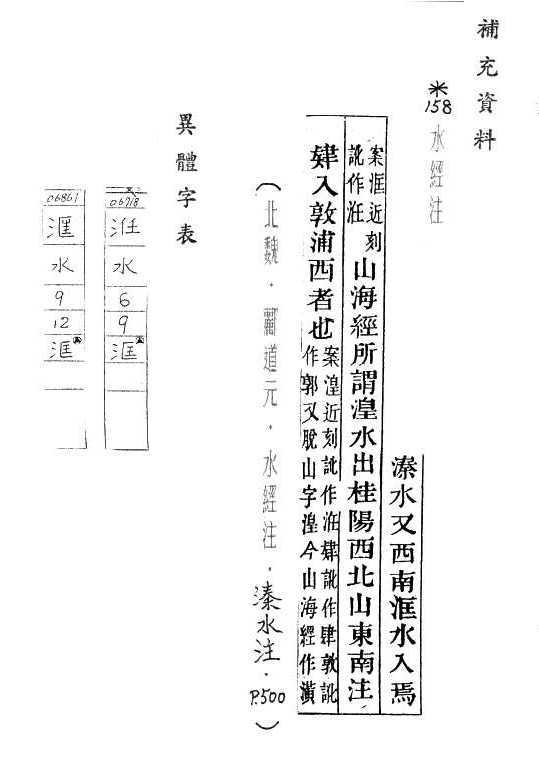 補充資料
*158 水經注
溱水又西南洭水入焉
案洭近刻
訛作汪
山海經所謂湟水出桂陽西北山東南注
肄入敦浦西者也
案湟近刻訛作汪肄訛作肆敦訛
作郭又脫山字湟今山海經作潢
(北魏．酈道元．水經注．溱水注．P.500)
異體字表
06718
汪
水
6
9
洭
06861
滙
水
9
12
洭